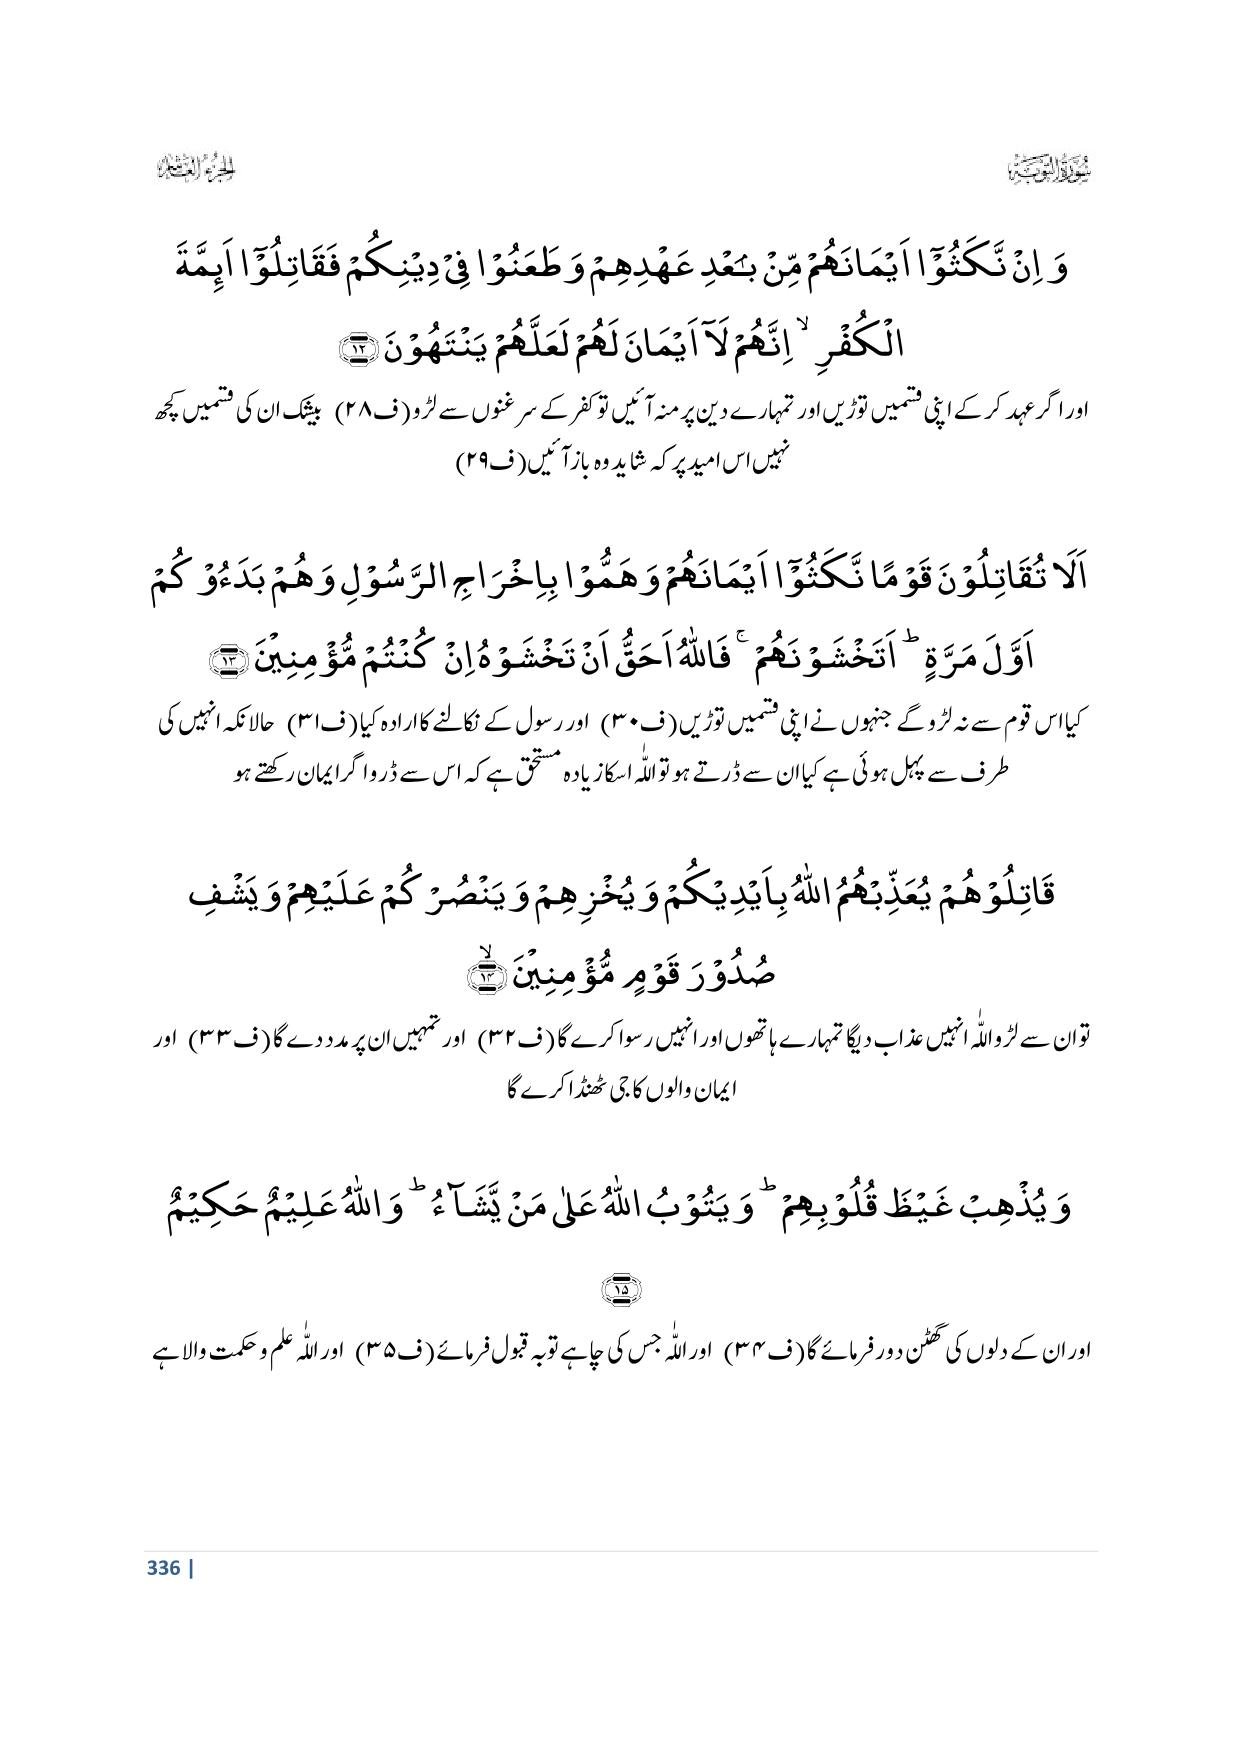 سُوْرَةُ التَّوْبَةِ
الجزء العاشر
وَ اِنْ نَّكَثُوْۤا اَیْمَانَهُمْ مِّنْۢ بَعْدِ عَهْدِهِمْ وَ طَعَنُوْا فِیْ دِیْنِكُمْ فَقَاتِلُوْۤا اَىِٕمَّةَ
الْكُفْرِ ۙ اِنَّهُمْ لَاۤ اَیْمَانَ لَهُمْ لَعَلَّهُمْ یَنْتَهُوْنَ ﴿۱۲﴾
اور اگر عہد کر کے اپنی قسمیں توڑیں اور تمہارے دین پر منہ آئیں تو کفر کے سرغنوں سے لڑو (ف۲۸) بیشک ان کی قسمیں کچھ
نہیں اس امید پر کہ شاید وہ باز آئیں (ف۲۹)
اَلَا تُقَاتِلُوْنَ قَوْمًا نَّكَثُوْۤا اَیْمَانَهُمْ وَ هَمُّوْا بِاِخْرَاجِ الرَّسُوْلِ وَ هُمْ بَدَءُوْ كُمْ
اَوَّلَ مَرَّةٍ ؕ اَتَخْشَوْنَهُمْ ۚ فَاللّٰهُ اَحَقُّ اَنْ تَخْشَوْهُ اِنْ كُنْتُمْ مُّؤْمِنِیْنَ ﴿۱۳﴾
کیا اس قوم سے نہ لڑو گے جنہوں نے اپنی قسمیں توڑیں (ف۳۰) اور رسول کے نکالنے کا ارادہ کیا (ف۳۱) حالانکہ انہیں کی
طرف سے پہل ہوئی ہے کیا ان سے ڈرتے ہو تو اللہ اسکا زیادہ مستحق ہے کہ اس سے ڈرو اگر ایمان رکھتے ہو
قَاتِلُوْهُمْ یُعَذِّبْهُمُ اللّٰهُ بِاَیْدِیْكُمْ وَ یُخْزِهِمْ وَ یَنْصُرْ كُمْ عَلَیْهِمْ وَ یَشْفِ
صُدُوْرَ قَوْمٍ مُّؤْمِنِیْنَ ﴿ۙ۱۴﴾
تو ان سے لڑو اللہ انہیں عذاب دیگا تمہارے ہاتھوں اور انہیں رسوا کرے گا (ف۳۲) اور تمہیں ان پر مدد دے گا (ف۳۳) اور
ایمان والوں کا جی ٹھنڈا کرے گا
وَ یُذْهِبْ غَیْظَ قُلُوْبِهِمْ ؕ وَ یَتُوْبُ اللّٰهُ عَلٰی مَنْ یَّشَآءُ ؕ وَ اللّٰهُ عَلِیْمٌ حَكِیْمٌ
﴿۱۵﴾
اور ان کے دلوں کی گھٹن دور فرمائے گا (ف۳۴) اور اللہ جس کی چاہے توبہ قبول فرمائے (ف۳۵) اور اللہ علم و حکمت والا ہے
336 |